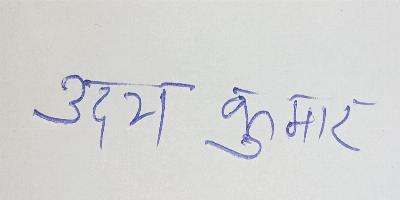 उदय कुमार